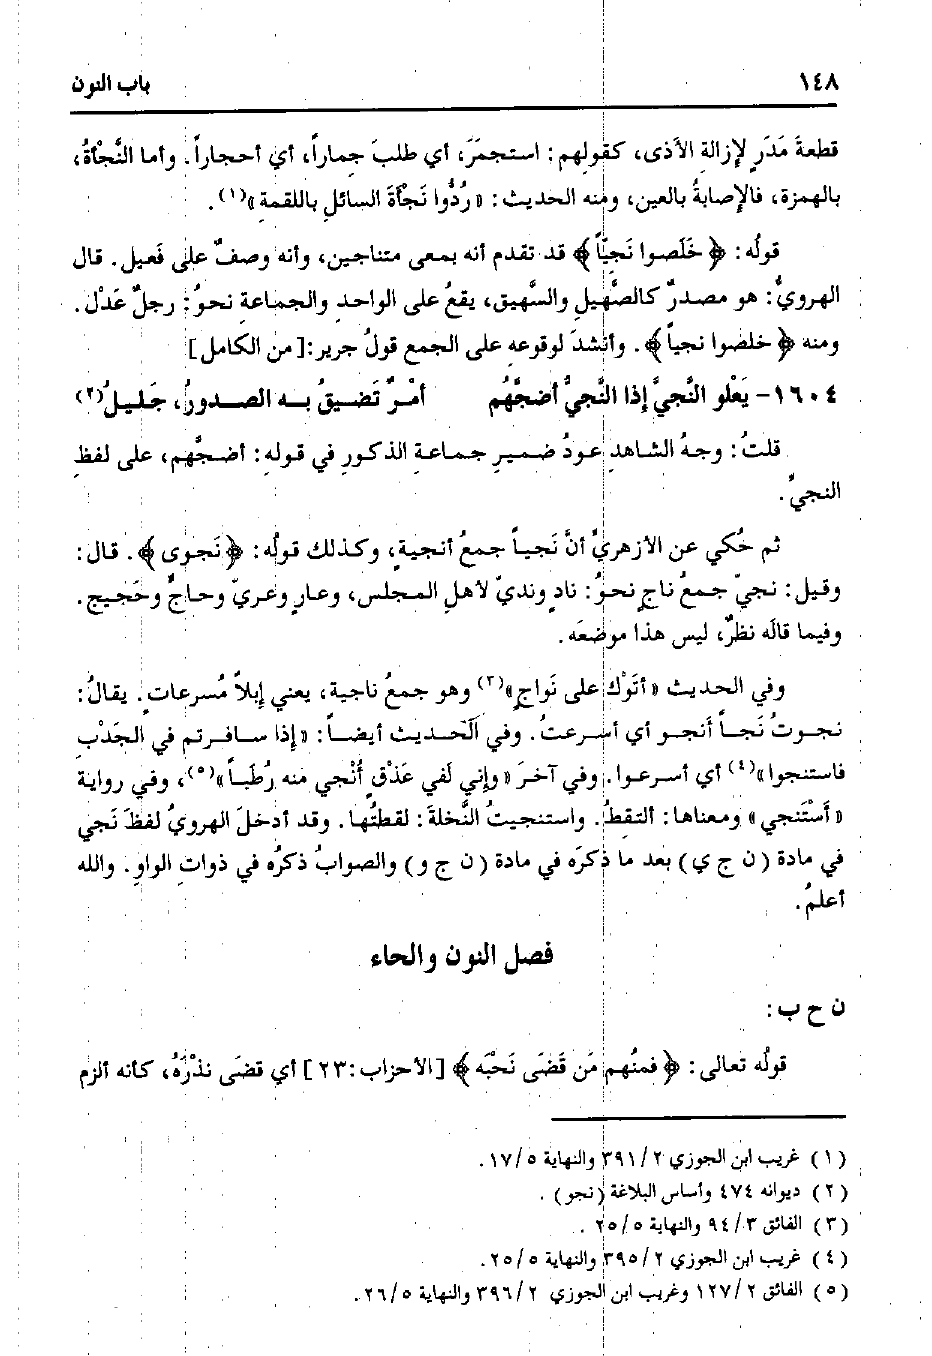 ١٤٨ باب النون
قطعةَ مَدَرٍ لإزالةِ الأذى، كقولِهم: استجمَرَ، أي طلبَ جِماراً، أي أحجاراً. وأما النَّجْأةُ،
بالهمزة، فالإصابةُ بالعين، ومنه الحديث: «رُدُّوا نَجْأةَ السائلِ باللقمةِ»(١).
قولُه: ﴿خَلَصوا نَجِيّاً﴾ قد تقدم أنه بمعنى متناجين، وأنه وصفٌ على فَعيل. قال
الهرويُّ: هو مصدرٌ كالصَّهيلِ والسَّهيق، يقعُ على الواحدِ والجماعةِ نحوُ: رجلٌ عَدْل.
ومنه ﴿خلصوا نجياً﴾. وأنشدَ لوقوعه على الجمع قولُ جرير:[من الكامل]
١٦٠٤- يَعْلو النَّجيَّ إذا النَّجيُّ أضجَّهُم أمْرٌ تَضيقُ بـه الصـدورُ، جَـليلُ(٢)
قلتُ: وجهُ الشاهدِ عودُ ضميرِ جماعةِ الذكورِ في قولِهِ: أضجَّهم، على لفظِ
النجيِّ.
ثم حُكي عن الأزهريِّ أنَّ نَجياً جمعُ أنجيةٍ، وكذلك قولُه: ﴿نَجوى﴾. قال:
وقيل: نجيّ جمعُ ناجٍ نحوُ: نادٍ ونديّ لأهلِ المجلس، وعارٍ وعَريّ وحاجٌّ وحَجيج.
وفيما قالَه نظرٌ، ليس هذا موضعَه.
وفي الحديث «أتَوْك على نَواجٍ»(٣) وهو جمعُ ناجية، يعني إبلاً مُسرعات. يقالُ:
نجـوتُ نَجـاً أنجـو أي أسـرعتُ. وفي الحـديث أيضـاً: «إذا سـافرتم في الجَدْبِ
فاستنجوا»(٤) أي أسرعوا. وفي آخرَ «وإني لَفي عَذْقٍ أُنْجي منه رُطَباً»(٥)، وفي رواية
«أَسْتَنجي» ومعناها: ألتقطُ. واستنجيتُ النَّخلةَ: لقطتُها. وقد أدخلَ الهرويُّ لفظَ نَجي
في مادة (ن ج ي) بعد ما ذكرَه في مادة (ن ج و) والصوابُ ذكرُه في ذواتِ الواوِ. والله
أعلمُ.
فصل النون والحاء
ن ح ب:
قولُه تعالى: ﴿فمنْهم مَن قَضَى نَحْبَه﴾ [الأحزاب:٢٣] أي قضَى نذْرَهُ، كأنه ألزم
(١) غريب ابن الجوزي ٣٩١/٢ والنهاية ١٧/٥.
(٢) ديوانه ٤٧٤ وأساس البلاغة (نجو).
(٣) الفائق ٩٤/٣ والنهاية ٢٥/٥.
(٤) غريب ابن الجوزي ٣٩٥/٢ والنهاية ٢٥/٥.
(٥) الفائق ١٢٧/٢ وغريب ابن الجوزي ٣٩٦/٢ والنهاية ٢٦/٥.